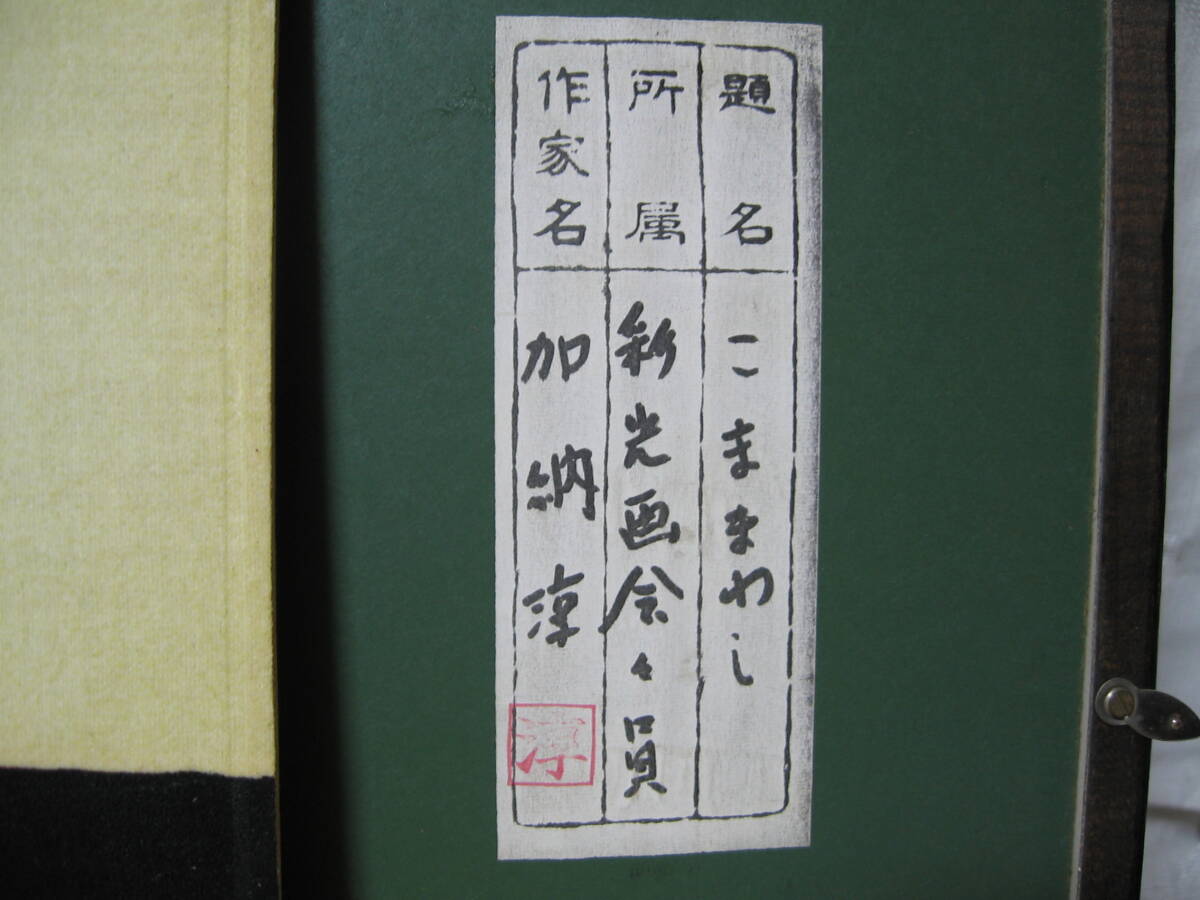 題名 こままわし
所属 彩光画会々員
作家名 加納淳
淳